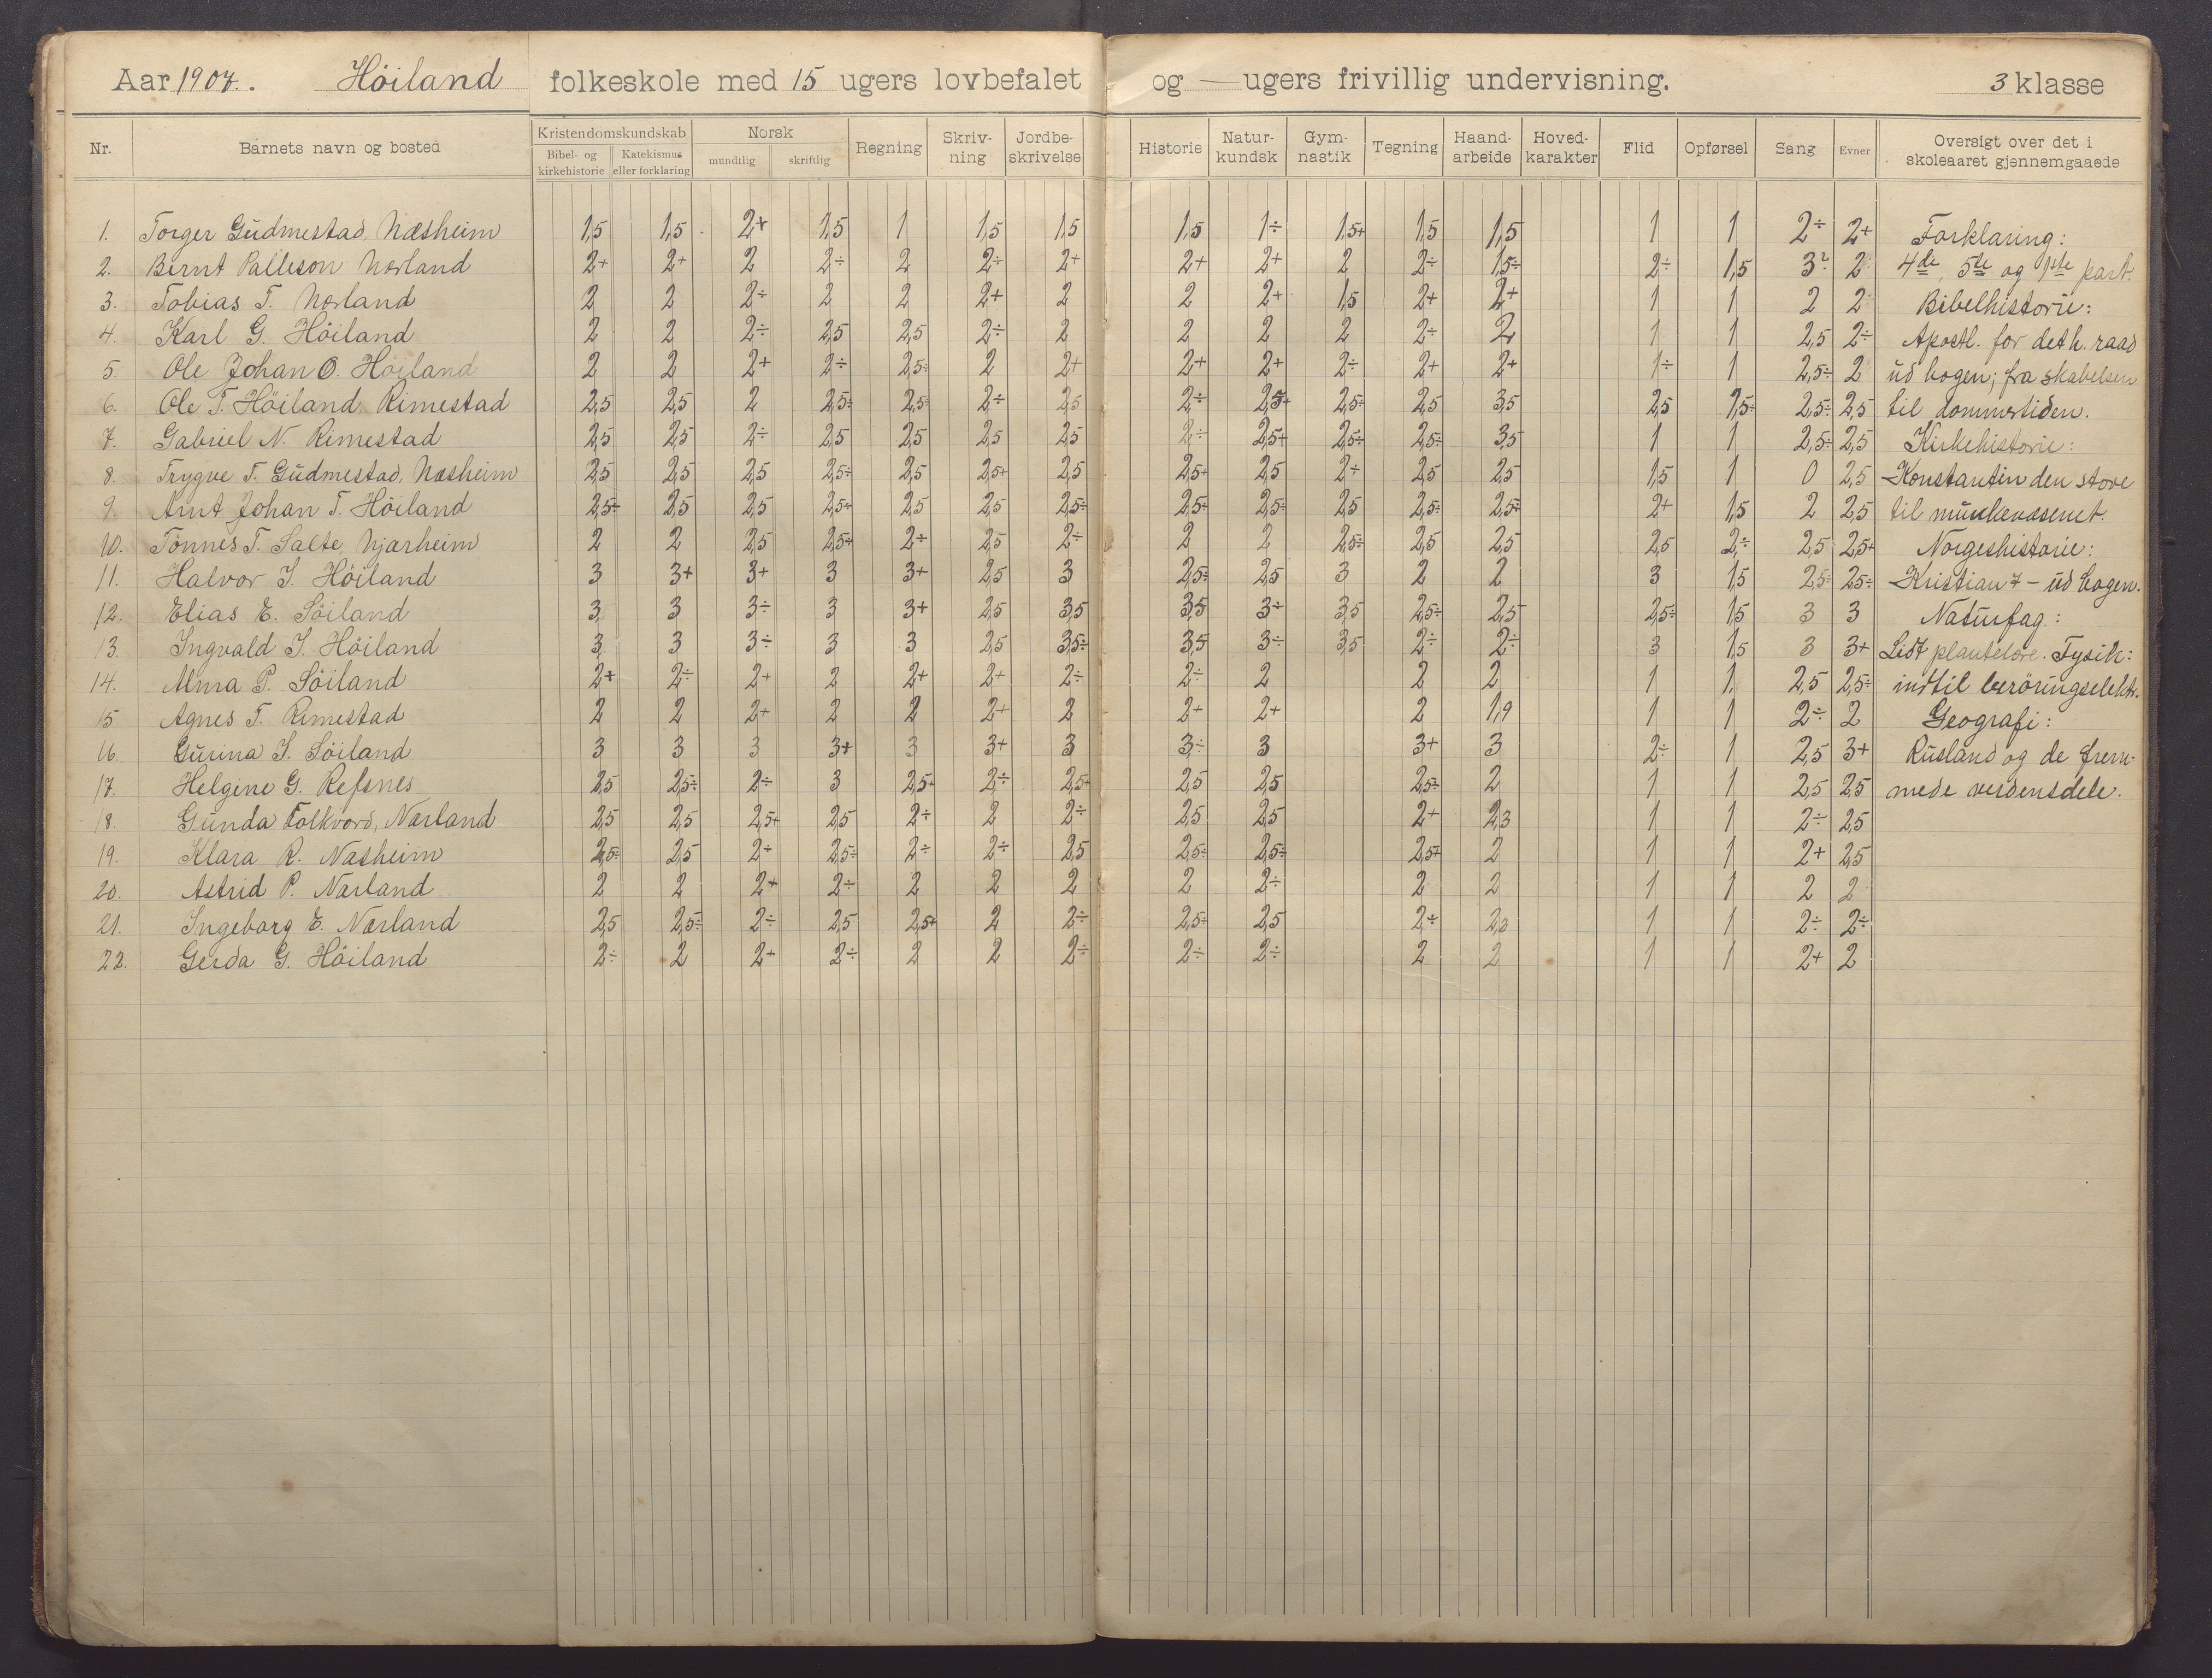 Aar 1907. Höiland folkeskole med 15 ugers lovbefalet og — ugers frivillig undervisning. 3 klasse
Nr. Barnets navn og bosted Kristendomskundskab Bibel- og kirkehistorie Katekismus eller forklaring Norsk mundtlig skriftlig Regning Skriv-ning Jordbe-skrivelse Historie Natur-kundsk Gym-nastik Tegning Haand-arbeide Hoved-karakter Flid Opførsel Sang Evner Oversigt over det i skoleaaret gjennemgaaede
1. Torger Gudmestad, Næsheim 1,5 1,5 2+ 1,5 1 1,5 1,5 1,5 1÷ 1,5+ 1,5 1,5 1 1 2÷ 2+ Forklaring:
2. Bernt Palleson Nærland 2+ 2+ 2 2÷ 2 2÷ 2+ 2+ 2+ 2 2÷ 1,5÷ 2÷ 1,5 3? 2 4de, 5te og 1ste part.
3. Tobias T. Nærland 2 2 2÷ 2 2 2+ 2 2 2+ 1,5 2+ 2+ 1 1 2 2 Bibelhistorie:
4. Karl G. Höiland 2 2 2÷ 2,5 2,5 2÷ 2 2 2 2 2÷ 2 1 1 2,5 2÷ Apostl. for det h. raad
5. Ole Johan O. Höiland 2 2 2+ 2÷ 2,5÷ 2 2+ 2+ 2+ 2÷ 2+ 2+ 1÷ 1 2,5÷ 2 ud bogen; fra skabelsen
6. Ole T. Höiland, Rimestad 2,5 2,5 2 2,5÷ 2,5÷ 2÷ 2,5 2÷ 2,5+ 2,5÷ 2,5 3,5 2,5 1,5÷ 2,5÷ 2,5 til dommertiden.
7. Gabriel N. Rimestad 2,5 2,5 2÷ 2,5 2,5 2,5 2,5 2÷ 2,5+ 2,5÷ 2,5÷ 3,5 1 1 2,5÷ 2,5 Kirkehistorie:
8. Trygve T. Gudmestad, Næsheim 2,5 2,5 2,5 2,5÷ 2,5 2,5+ 2,5 2,5+ 2,5 2÷ 2,5 2,5 1,5 1 0 2,5 Konstantin den store
9. Arnt Johan T. Höiland 2,5÷ 2,5 2,5 2,5÷ 2,5 2,5 2,5÷ 2,5÷ 2,5÷ 2,5 2,5÷ 2,5÷ 2+ 1,5 2 2,5 til munkevæsenet.
10. Tönnes T. Salte, Njærheim 2 2 2,5 2,5+ 2÷ 2,5 2÷ 2 2 2,5÷ 2,5 2,5 2,5 2÷ 2,5 2,5+ Norgeshistorie:
11. Halvor I. Höiland 3 3+ 3+ 3 3+ 2,5 3 2,5÷ 2,5 3 2 2 3 1,5 2,5÷ 2,5÷ Kristian 7 – ud bogen.
12. Elias E. Söiland 3 3 3÷ 3 3+ 2,5 3,5 3,5 3÷ 3,5 2,5÷ 2,5 2,5÷ 1,5 3 3 Naturfag:
13. Ingvald I. Höiland 3 3 3÷ 3 3 2,5 3,5÷ 3,5 3÷ 3,5 2÷ 2÷ 3 1,5 3 3+ Lidt plantelære. Fysik:
14. Alma P. Söiland 2+ 2÷ 2+ 2 2+ 2+ 2÷ 2÷ 2 2 2 1 1 2,5 2,5÷ indtil beröringselektr.
15 Agnes T. Rimestad 2 2 2+ 2 2 2+ 2 2+ 2+ 2 1,9 1 1 2÷ 2 Geografi:
16. Gurina I. Söiland 3 3 3 3+ 3 3+ 3 3÷ 3 3+ 3 2÷ 1 2,5 3+ Rusland og de frem-
17. Helgine G. Refsnes 2,5 2,5÷ 2÷ 3 2,5+ 2÷ 2,5+ 2,5 2,5 2,5÷ 2 1 1 2,5 2,5 mede verdensdele.
18. Gunda Folkvord, Nærland 2,5 2,5 2,5+ 2,5 2÷ 2 2÷ 2,5 2,5 2+ 2,3 1 1 2÷ 2,5
19. Klara R. Næsheim 2,5÷ 2,5 2÷ 2,5÷ 2÷ 2÷ 2,5 2,5÷ 2,5÷ 2,5+ 2 1 1 2+ 2,5
20. Astrid P. Nærland 2 2 2+ 2÷ 2 2 2 2 2÷ 2 2 1 1 2 2
21. Ingeborg E. Nærland 2,5 2,5÷ 2÷ 2,5 2,5+ 2 2÷ 2,5÷ 2,5 2÷ 2,3 1 1 2÷ 2÷
22. Gerda G. Höiland 2÷ 2 2+ 2÷ 2 2 2÷ 2÷ 2÷ 2 2 1 1 2+ 2